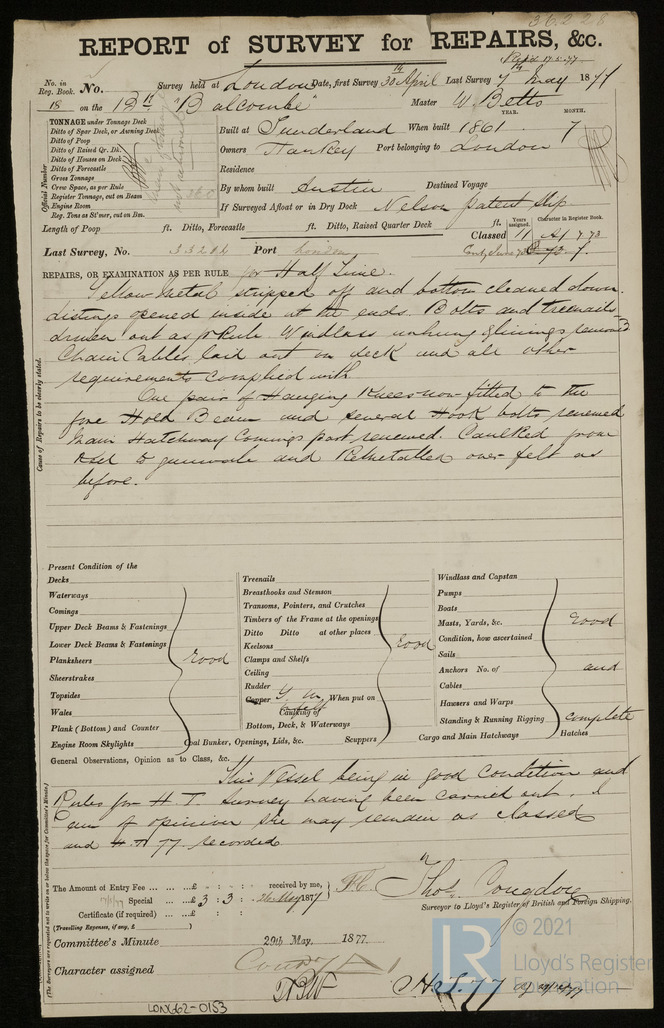 36228
REPORT of SURVEY for REPAIRS, &c.
Rec'd 17.5.77
No. in Reg. Book. No. Survey held at London Date, first Survey 30 April Last Survey 14 May 1877
18 on the Bk "Balcombe" Master W. Betts
TONNAGE under Tonnage Deck
Ditto of Spar Deck, or Awning Deck
Ditto of Poop
Ditto of Raised Qr. Dk.
Ditto of Houses on Deck
Ditto of Forecastle
Gross Tonnage
Crew Space, as per Rule
Register Tonnage, cut on Beam
Engine Room
Reg. Tons as St'mer, cut on Bm.
Official Number
YEAR. MONTH.
Built at Sunderland When built 1861 7
Owners Hankey Port belonging to London
Residence
By whom built Austin Destined Voyage
If Surveyed Afloat or in Dry Dock Nelson patent slip
Length of Poop ft. Ditto, Forecastle ft. Ditto, Raised Quarter Deck ft.
Years assigned. Character in Register Book.
Classed 11 A1 7.73
Last Survey, No. Port London
REPAIRS, OR EXAMINATION AS PER RULE for Half Time.
Yellow Metal stripped off and bottom cleaned down.
listings opened inside at the ends. Bolts and treenails
driven out as pr Rule. Windlass unhung & linings removed
Chain Cables laid out on deck and all other
requirements complied with
One pair of Hanging Knees now fitted to the
fore Hold Beam and several Hook bolts renewed
Main Hatchway Comings part renewed. Caulked from
keel to gunwale and Remetalled over felt as
before.
Cause of Repairs to be clearly stated.
Present Condition of the
Decks
Waterways
Comings
Upper Deck Beams & Fastenings
Lower Deck Beams & Fastenings
Planksheers
Sheerstrakes
Topsides
Wales
Plank (Bottom) and Counter
Engine Room Skylights
Good
Treenails
Breasthooks and Stemson
Transoms, Pointers, and Crutches
Timbers of the Frame at the openings
Ditto Ditto at other places
Keelsons
Clamps and Shelfs
Ceiling
Rudder
Copper Y. M. When put on
Caulking of
Bottom, Deck, & Waterways
Coal Bunker, Openings, Lids, &c. Scuppers
Good
Windlass and Capstan
Pumps
Boats
Masts, Yards, &c.
Condition, how ascertained
Sails
Anchors No. of
Cables
Hawsers and Warps
Standing & Running Rigging
Cargo and Main Hatchways Hatches
Good
and
Complete
General Observations, Opinion as to Class, &c.
This Vessel being in good Condition and
Rules for H T. Survey having been carried out. I
am of opinion she may remain as classed
and H.T 77 recorded
(The Surveyors are requested not to write on or below the space for Committee's Minute.)
The Amount of Entry Fee ... ... £ : : received by me,
Special ... ... £ 3 : 3 : 26 May 1877
Certificate (if required) ... £ : :
(Travelling Expenses, if any, £ )
Thos. Congdon
Surveyor to Lloyd's Register of British and Foreign Shipping.
Committee's Minute 29th May, 1877.
Character assigned
H.T. 77
LON662-0153
LR
© 2021
Lloyd's Register
Foundation